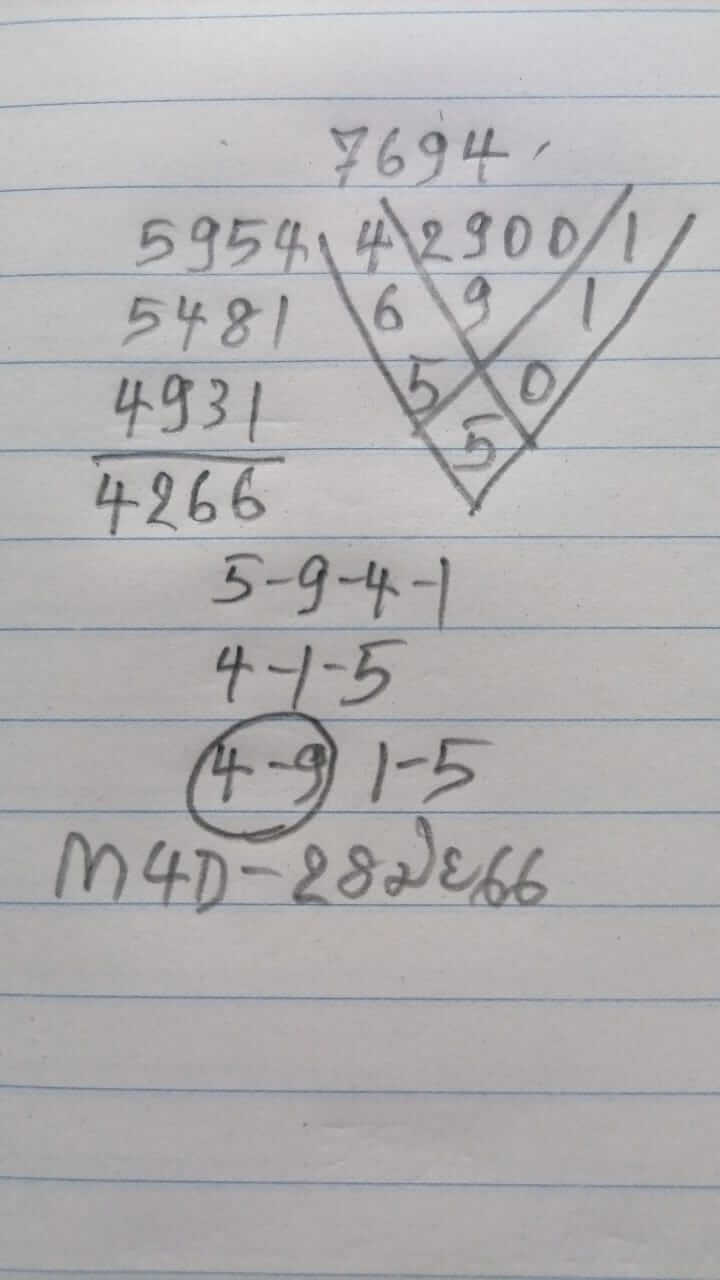 7694
5954 4 2900 1
5481 6 9 1
4931 5 0
4266 5
5-9-4-1
4-1-5
4-9 1-5
M4D-28
66